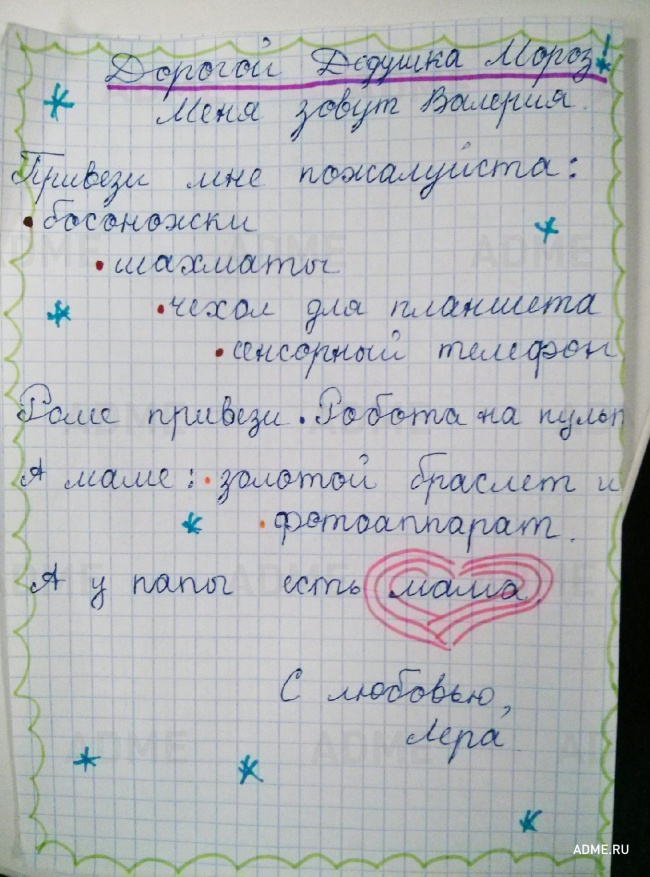 Дорогой Дедушка Мороз!
Меня зовут Валерия.
Привези мне пожалуйста:
• босоножки
• шахматы
• чехол для планшета
• сенсорный телефон
Роме привези • Робота на пульт
А маме: • золотой браслет и
• фотоаппарат.
А у папы есть мама.
С любовью,
Лера
ADME
ADME
ADME
ADME
ADME
ADME.RU